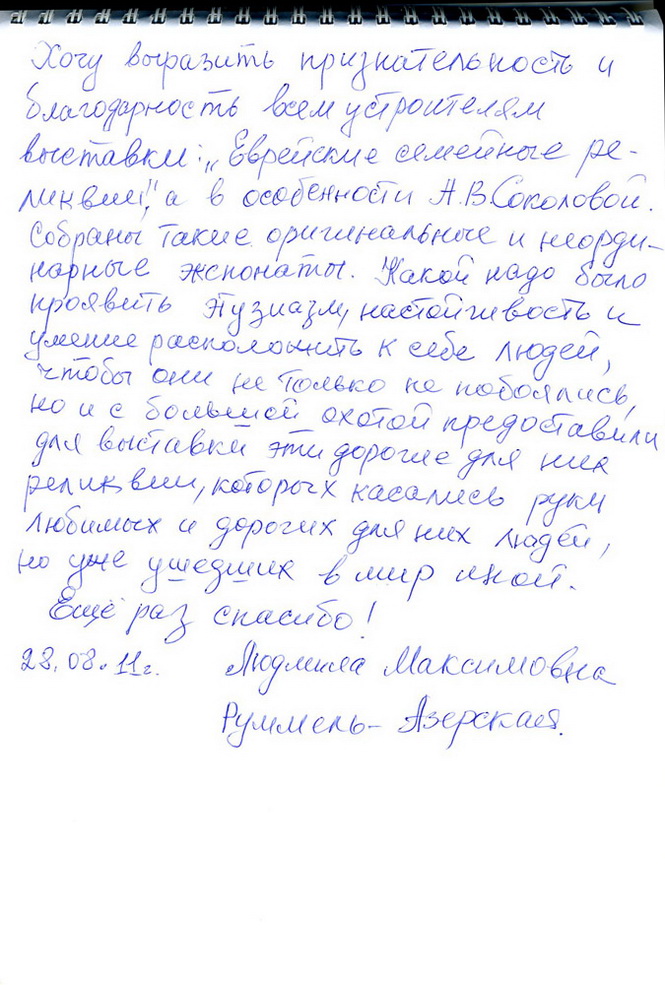 Хочу выразить признательность и
благодарность всем устроителям
выставки: „Еврейские семейные ре-
ликвии", а в особенности А.В.Соколовой.
Собраны такие оригинальные и неорди-
нарные экспонаты. Какой надо было
проявить этузиазм, настойчивость и
умение расположить к себе людей,
чтобы они не только не побоялись,
но и с большой охотой предоставили
для выставки эти дорогие для них
реликвии, которых касались руки
любимых и дорогих для них людей,
но уже ушедших в мир иной.
Ещё раз спасибо!
28.08.11г. Людмила Максимовна
Руммель-Азерская.